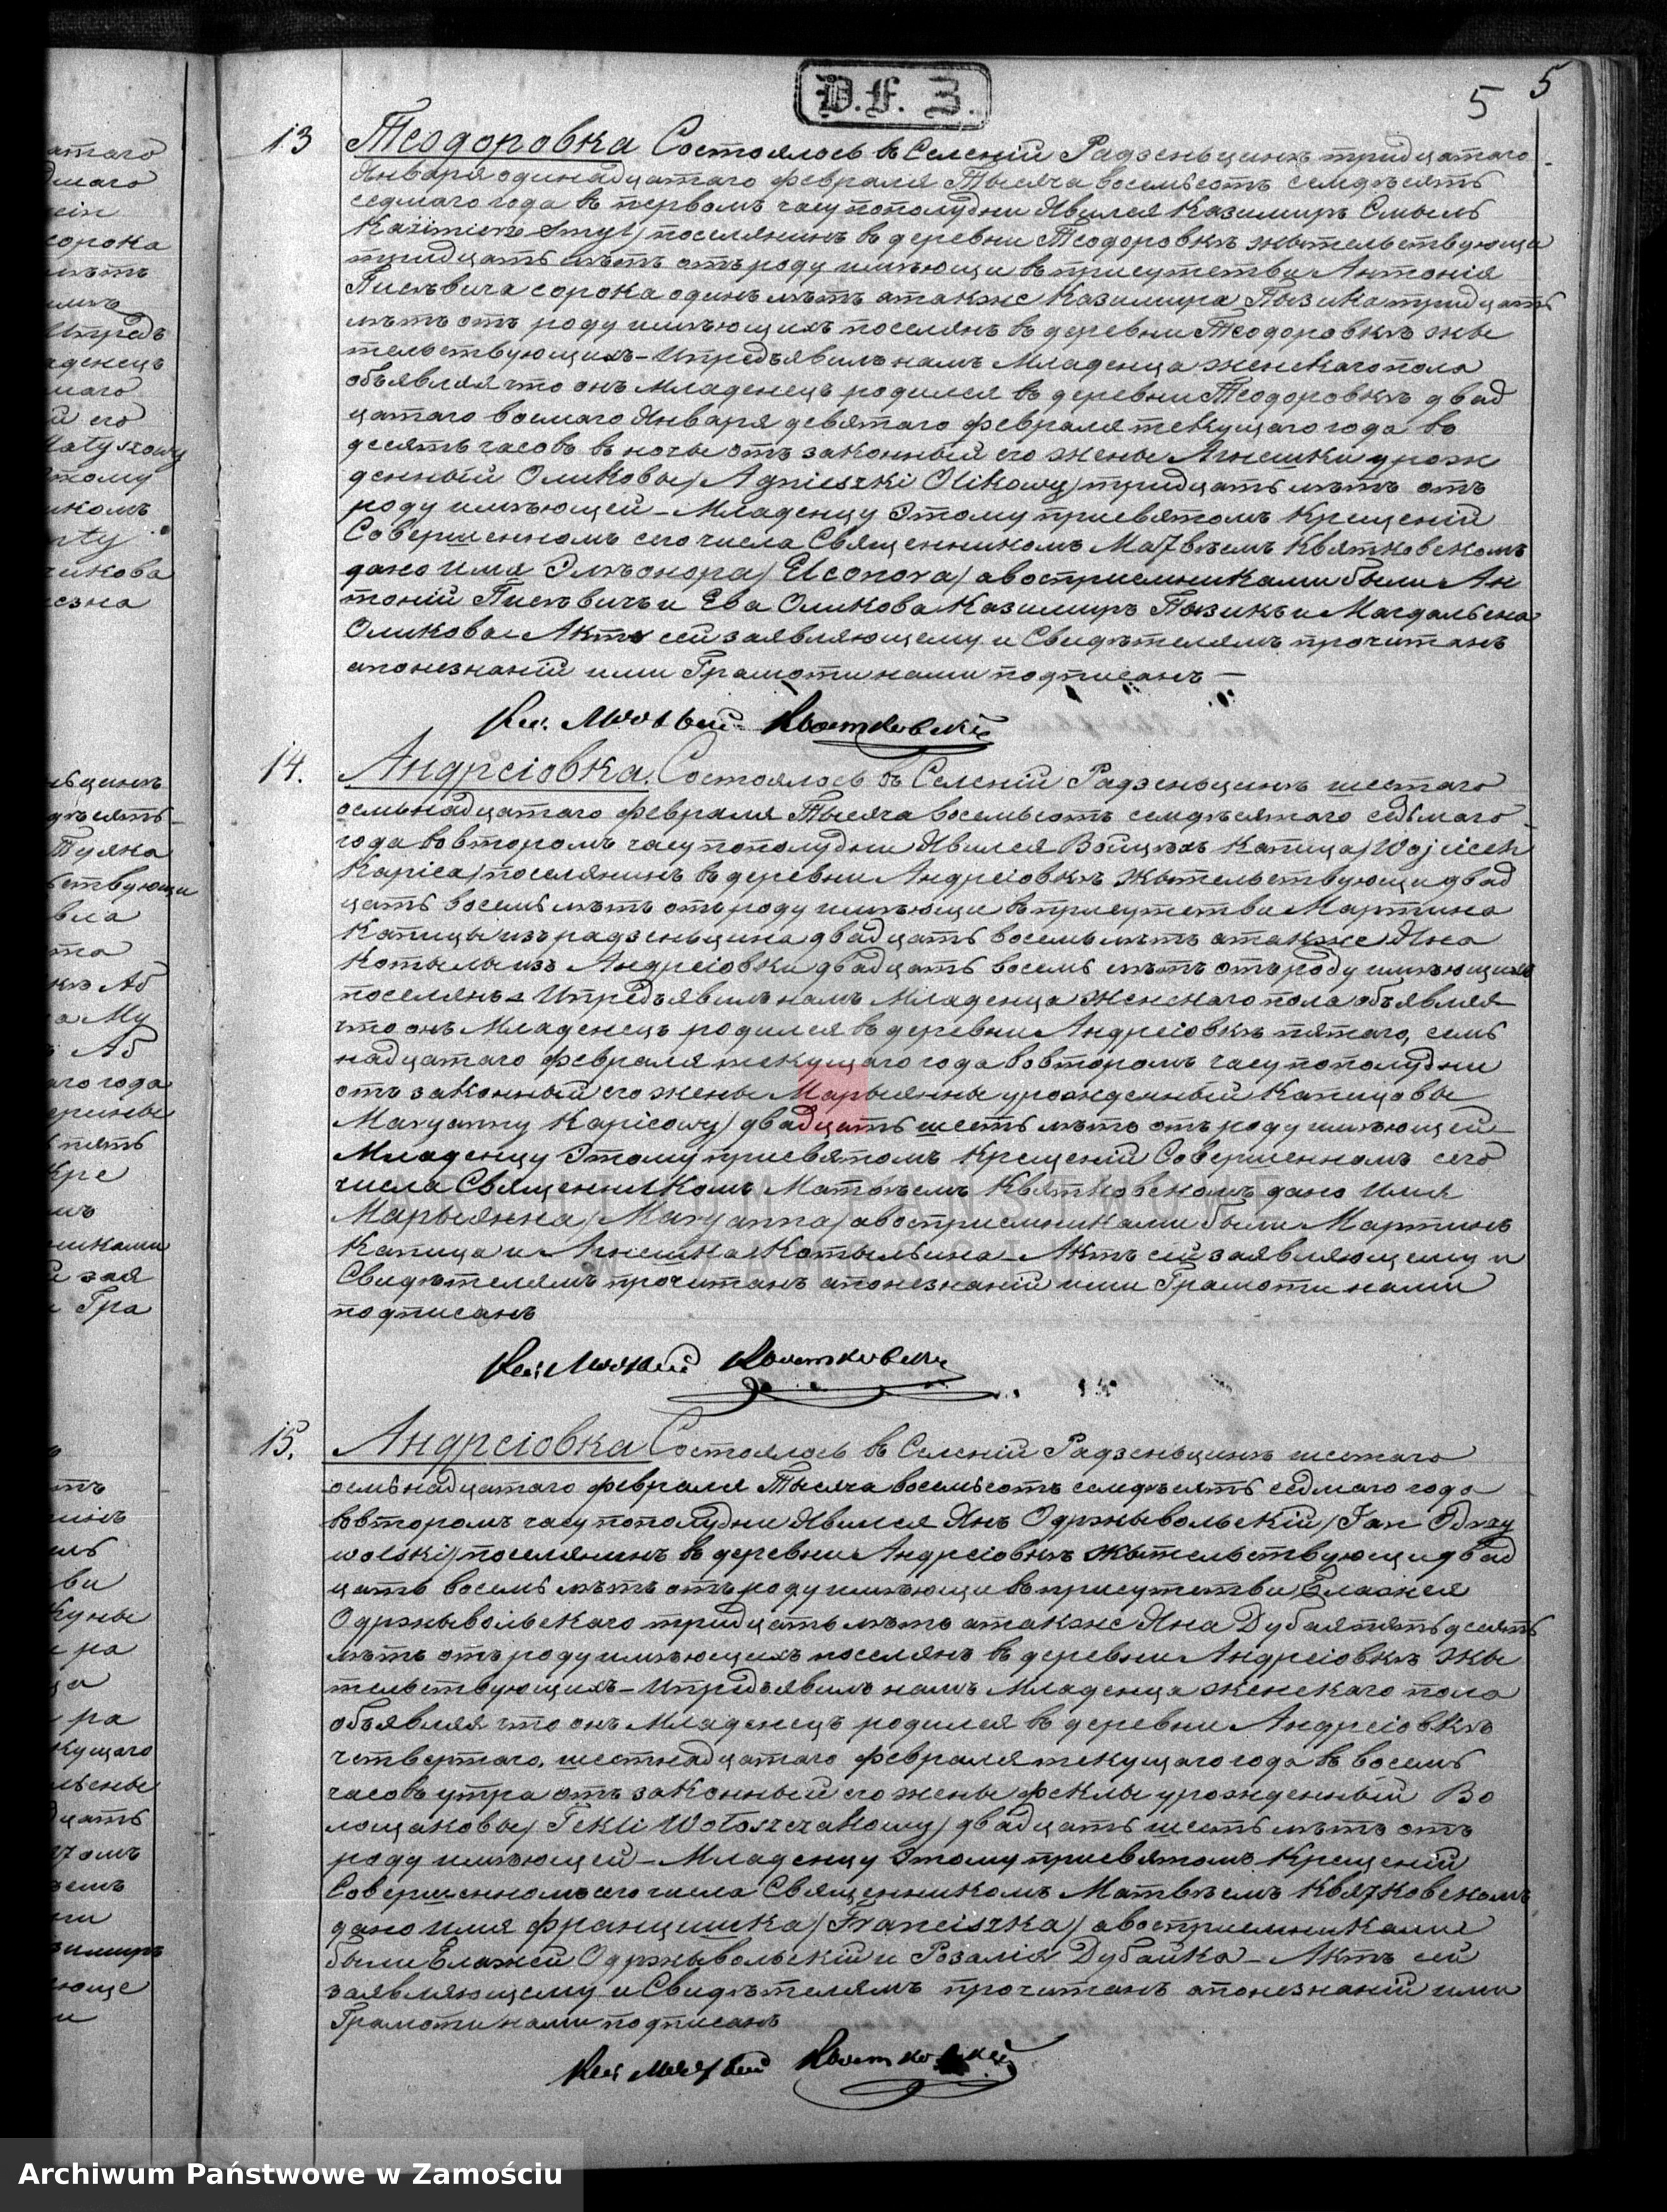 D. F. 3.
5 5
13 Теодоровка Состоялось в Селеній Радзеньцинѣ тридцатаго
Января одинадцатаго февраля Тысяча восемьсотъ семдѣсятъ
седмаго года въ первомъ часу пополудни Явился Казимиръ Смыль
Kazimierz Smyl) поселянинъ въ деревни Теодоровкѣ жытельствующи
тридцать лѣтъ отъ роду имѣющи въ присутстви Антонія
Писѣвича сорока одинъ лѣтъ атакже Казимира Пызика тридцать
лѣтъ отъ роду имѣющихъ поселянъ въ деревни Теодоровкѣ жы
тельствующихъ – Ипредъявилъ намъ Младенца женскаго пола
объявляя что онъ Младенецъ родился въ деревни Теодоровкѣ двад
цатаго восмаго Января девятаго февраля текущаго года во
десять часовъ въ ночы отъ законный его жены Агнешки урож
денный Оликовы) Agnieszki Olikowy) тридцать лѣтъ отъ
роду имѣющей – Младенцу Этому присвятомъ Крещеній
Совершенномъ сего числа Священникомъ Матвѣемъ Квятковскомъ
дано Имя Элѣонора) Eleonora) авосприемниками были Ан
тоній Писѣвичъ и Ева Оликова Казимиръ Пызикъ и Магдальена
Оликова Актъ сей заявляющему и Свидѣтелямъ прочитанъ
апонезнаній ими Грамоти нами подписанъ –
Кс. Матвей Квятковскій
14. Андреіовка. Состоялось въ Селеній Радзеньцинѣ шестаго
осмьнадцатаго февраля Тысяча восемьсотъ семдѣсятаго седьмаго
года вовторомъ часу пополудни Явился Войцѣхъ Капица) Wojciech
Kapica) поселянинъ въ деревни Андреіовкѣ Жытельствующи двад
цать восемь лѣтъ отъ роду имѣющи въ присутстви Мартина
Капицы изъ радзеньцина двадцать восемь лѣтъ атакже Яна
Котылы изъ Андреіовки двадцать восемь лѣтъ отъ роду имѣющихъ
поселянъ – Ипредъявилъ намъ Младенца Женскаго пола объявляя
что онъ Младенецъ родился въ деревни Андреіовкѣ пятаго, семь
надцатаго февраля текущаго года вовторомъ часу пополудни
отъ законный его жены Марыянны урожденный Капицовы
Maryanny Kapicowy) двадцать шесть лѣтъ отъ роду имѣющей
Младенцу Этому присвятомъ Крещеній Совершенномъ сего
числа Священникомъ Матвѣемъ Квятковскомъ дано Имя
Марыянна) Maryanna) авосприемниками были Мартинъ
Капица и Агнешка Котыльина – Актъ сей заявляющему и
Свидѣтелямъ прочитанъ апонезнаній ими Грамоти нами
подписанъ
Кс: Матвей Квятковскій
15. Андреіовка Состоялось въ Селеній Радзеньцинѣ шестаго
осмьнадцатаго февраля Тысяча восемьсотъ семдѣсятъ седмаго года
вовторомъ часу пополудни Явился Янъ Одржывольскій) Jan Odrzy
wolski) поселянинъ въ деревни Андреіовкѣ Жытельствующи двад
цать восемь лѣтъ отъ роду имѣющи въ присутстви Блажея
Одржывольскаго тридцать лѣтъ атакже Яна Дубая пятьдесятъ
лѣтъ отъ роду имѣющихъ поселянъ въ деревни Андреіовкѣ Жы
тельствующихъ – Ипредъявилъ намъ Младенца женскаго пола
объявляя что онъ Младенецъ родился въ деревни Андреіовкѣ
четвертаго, шестнадцатаго февраля текущаго года въ восемь
часовъ утра отъ законный его жены феклы урожденный Во
лощаковы) Tekli Wołoszczakowy) двадцать шесть лѣтъ отъ
роду имѣющей – Младенцу Этому присвятомъ Крещеній
Совершенномъ сего числа Священникомъ Матвѣемъ Квятковскомъ
дано Имя францишка) Franciszka) авосприемниками
были Блажей Одржывольскій и Розалія Дубайка – Актъ сей
заявляющему и Свидѣтелямъ прочитанъ апонезнаній ими
Грамоти нами подписанъ
Кс: Матвей Квятковскій
ARCHIWUM PAŃSTWOWE
W ZAMOŚCIU
Archiwum Państwowe w Zamościu